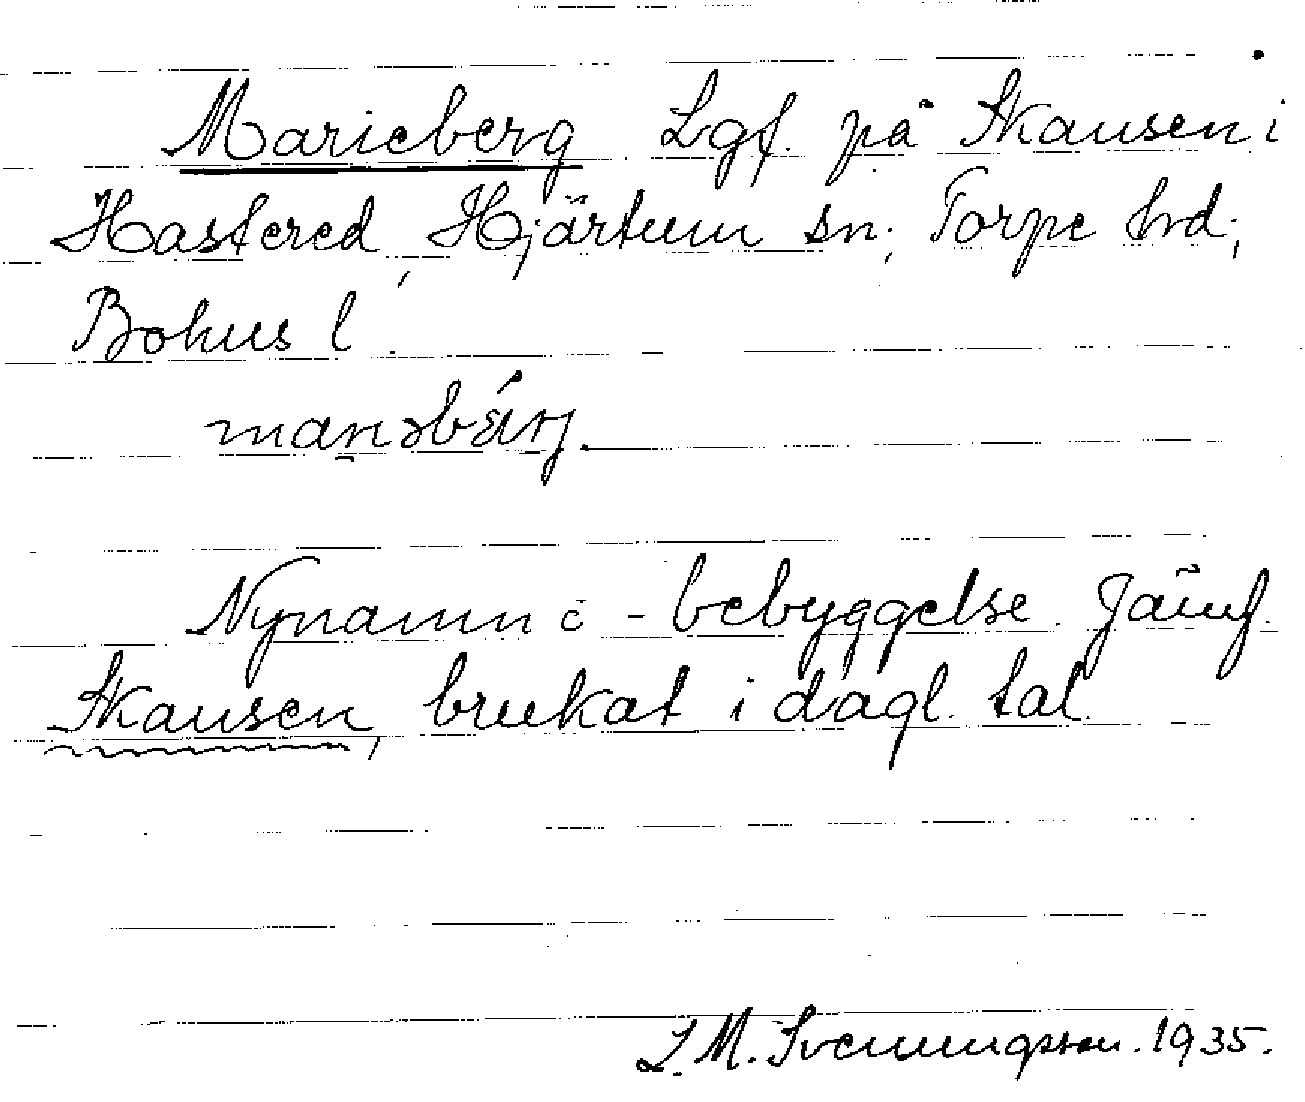 Marieberg Lgf. på Skausen i
Hastered, Hjärtum sn; Torpe hrd;
Bohus l.
Nynamn å -bebyggelse. Jämf.
Skausen, brukat i dagl. tal.
L. M. Svenungsson. 1935.